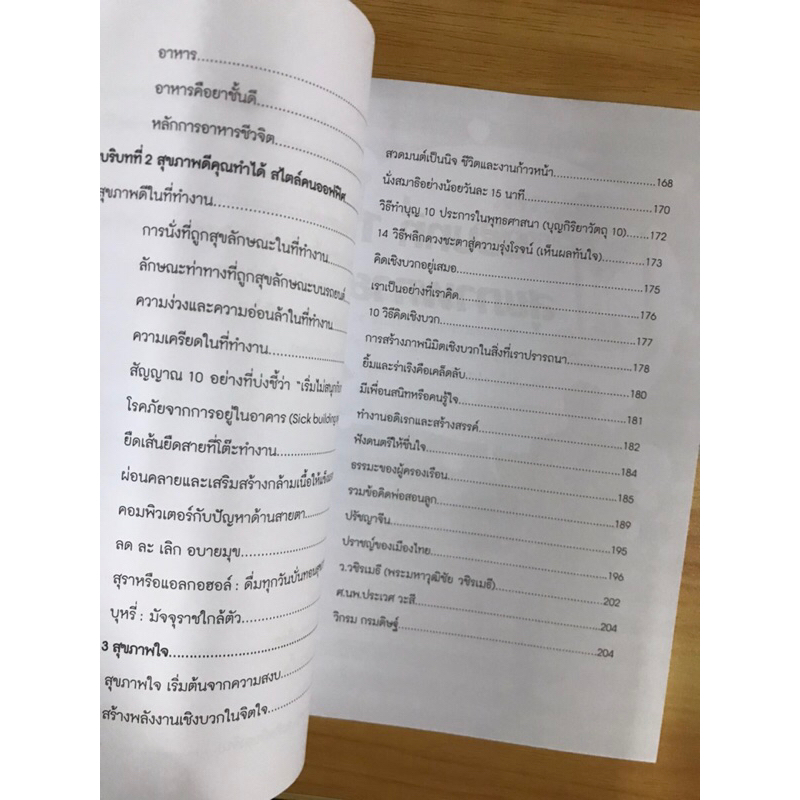 อาหาร
อาหารคือยาชั้นดี
หลักการอาหารชีวจิต
บริบทที่ 2 สุขภาพดีคุณทำได้ สไตล์คนออฟฟิศ
สุขภาพดีในที่ทำงาน
การนั่งที่ถูกสุขลักษณะในที่ทำงาน
ลักษณะท่าทางที่ถูกสุขลักษณะบนรถยนต์
ความง่วงและความอ่อนล้าในที่ทำงาน
ความเครียดในที่ทำงาน
สัญญาณ 10 อย่างที่บ่งชี้ว่า "เริ่มไม่สนุกกับ
โรคภัยจากการอยู่ในอาคาร (Sick building
ยืดเส้นยืดสายที่โต๊ะทำงาน
ผ่อนคลายและเสริมสร้างกล้ามเนื้อให้แข็งแรง
คอมพิวเตอร์กับปัญหาด้านสายตา
ลด ละ เลิก อบายมุข
สุราหรือแอลกอฮอล์ : ดื่มทุกวันบั่นทอนสุข
บุหรี่ : มัจจุราชใกล้ตัว
3 สุขภาพใจ
สุขภาพใจ เริ่มต้นจากความสงบ
สร้างพลังงานเชิงบวกในจิตใจ
สวดมนต์เป็นนิจ ชีวิตและงานก้าวหน้า 168
นั่งสมาธิอย่างน้อยวันละ 15 นาที 170
วิธีทำบุญ 10 ประการในพุทธศาสนา (บุญกิริยาวัตถุ 10) 172
14 วิธีพลิกดวงชะตาสู่ความรุ่งโรจน์ (เห็นผลทันใจ) 173
คิดเชิงบวกอยู่เสมอ 175
เราเป็นอย่างที่เราคิด 176
10 วิธีคิดเชิงบวก 177
การสร้างภาพนิมิตเชิงบวกในสิ่งที่เราปรารถนา 178
ยิ้มและร่าเริงคือเคล็ดลับ 180
มีเพื่อนสนิทหรือคนรู้ใจ 181
ทำงานอดิเรกและสร้างสรรค์ 182
ฟังดนตรีให้ชื่นใจ 184
ธรรมะของผู้ครองเรือน 185
รวมข้อคิดพ่อสอนลูก 189
ปรัชญาจีน 195
ปราชญ์ของเมืองไทย 196
ว.วชิรเมธี (พระมหาวุฒิชัย วชิรเมธี) 202
ศ.นพ.ประเวศ วะสี 204
วิกรม กรมดิษฐ์ 204